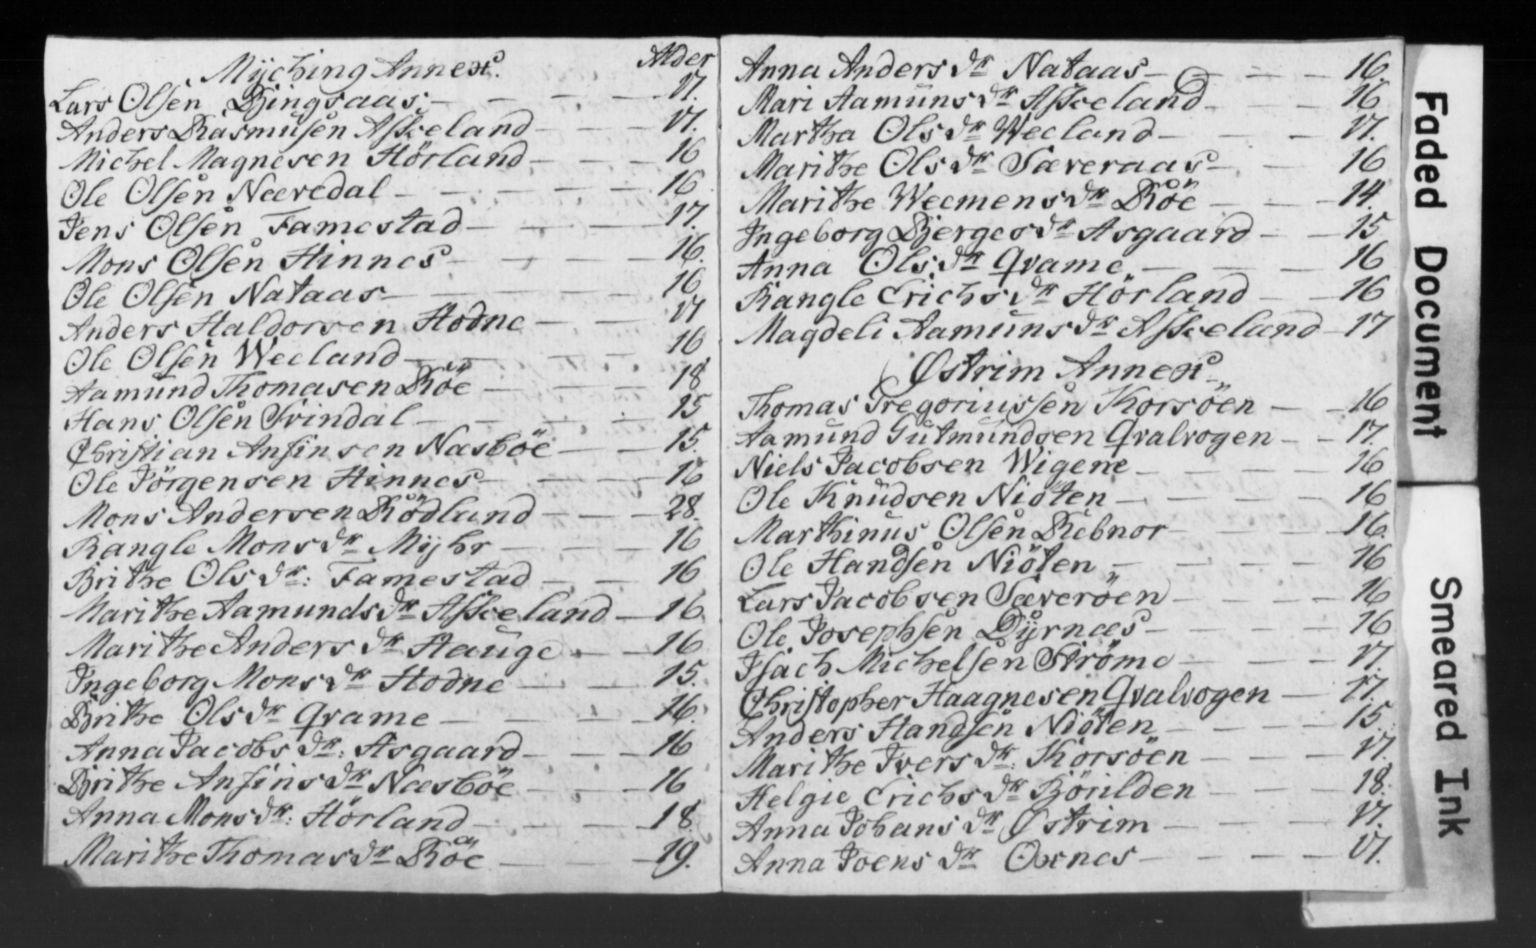 Mÿching Annex. Alder
Lars Olsen Bingsaas 17.
Anders Rasmusen Asseland 17.
Michel Magnesen Hörland 16
Ole Olsen Næredal 16
Jens Olsen Famestad 17.
Mons Olsen Hinnes 16.
Ole Olsen Nataas 16
Anders Haldorsen Hodne 17
Ole Olsen Weeland 16
Aamund Thomasen Röe 18
Hans Olsen Svindal 15
Christian Anfinsen Nasböe 15.
Ole Jörgensen Hinnes 16
Mons Andersen Rödland 28.
Rangle Mons dr Mÿhr 16
Brithe Ols dr: Famestad 16
Marithe Aamunds dr Asseland 16.
Marithe Anders dr Hauge 16
Ingeborg Mons dr Hodne 15.
Brithe Ols dr Qvame 16.
Anna Jacobs dr: Asgaard 16
Brithe Anfins dr Næsböe 16
Anna Mons dr: Hörland 18.
Marithe Thomas dr Röe 19.
Anna Anders dr Nataas 16.
Mari Aamuns dr Asseland 16
Martha Ols dr Weeland 17.
Marithe Ols dr Sæveraas 16
Marithe Weemens dr Röe 14.
Ingeborg Bjerges dr Asgaard 15
Anna Ols dr Qvame 16
Rangle Erichs dr Hörland 16
Magdeli Aamuns dr Asseland 17
Østrim Annex
Thomas Gregoriussen Thorsöen 16
Aamund Gutmundsen Qvalvogen 17.
Niels Jacobsen Wigene 16
Ole Knudsen Niöten 16
Marthinus Olsen Rebnor 16.
Ole Handsen Niöten 16
Lars Jacobsen Sæveröen 16
Ole Josephsen Dÿrnæs 16
Isach Michelsen Ströme 17.
Christopher Haagnesen Qvalvogen 17.
Anders Handsen Niöten 15
Marithe Ivers dr: Thorsöen 17.
Helge Erichs dr Börilden 18.
Anna Johans dr Østrim 17.
Anna Joens dr Oxnes 17.
Faded Document
Smeared Ink